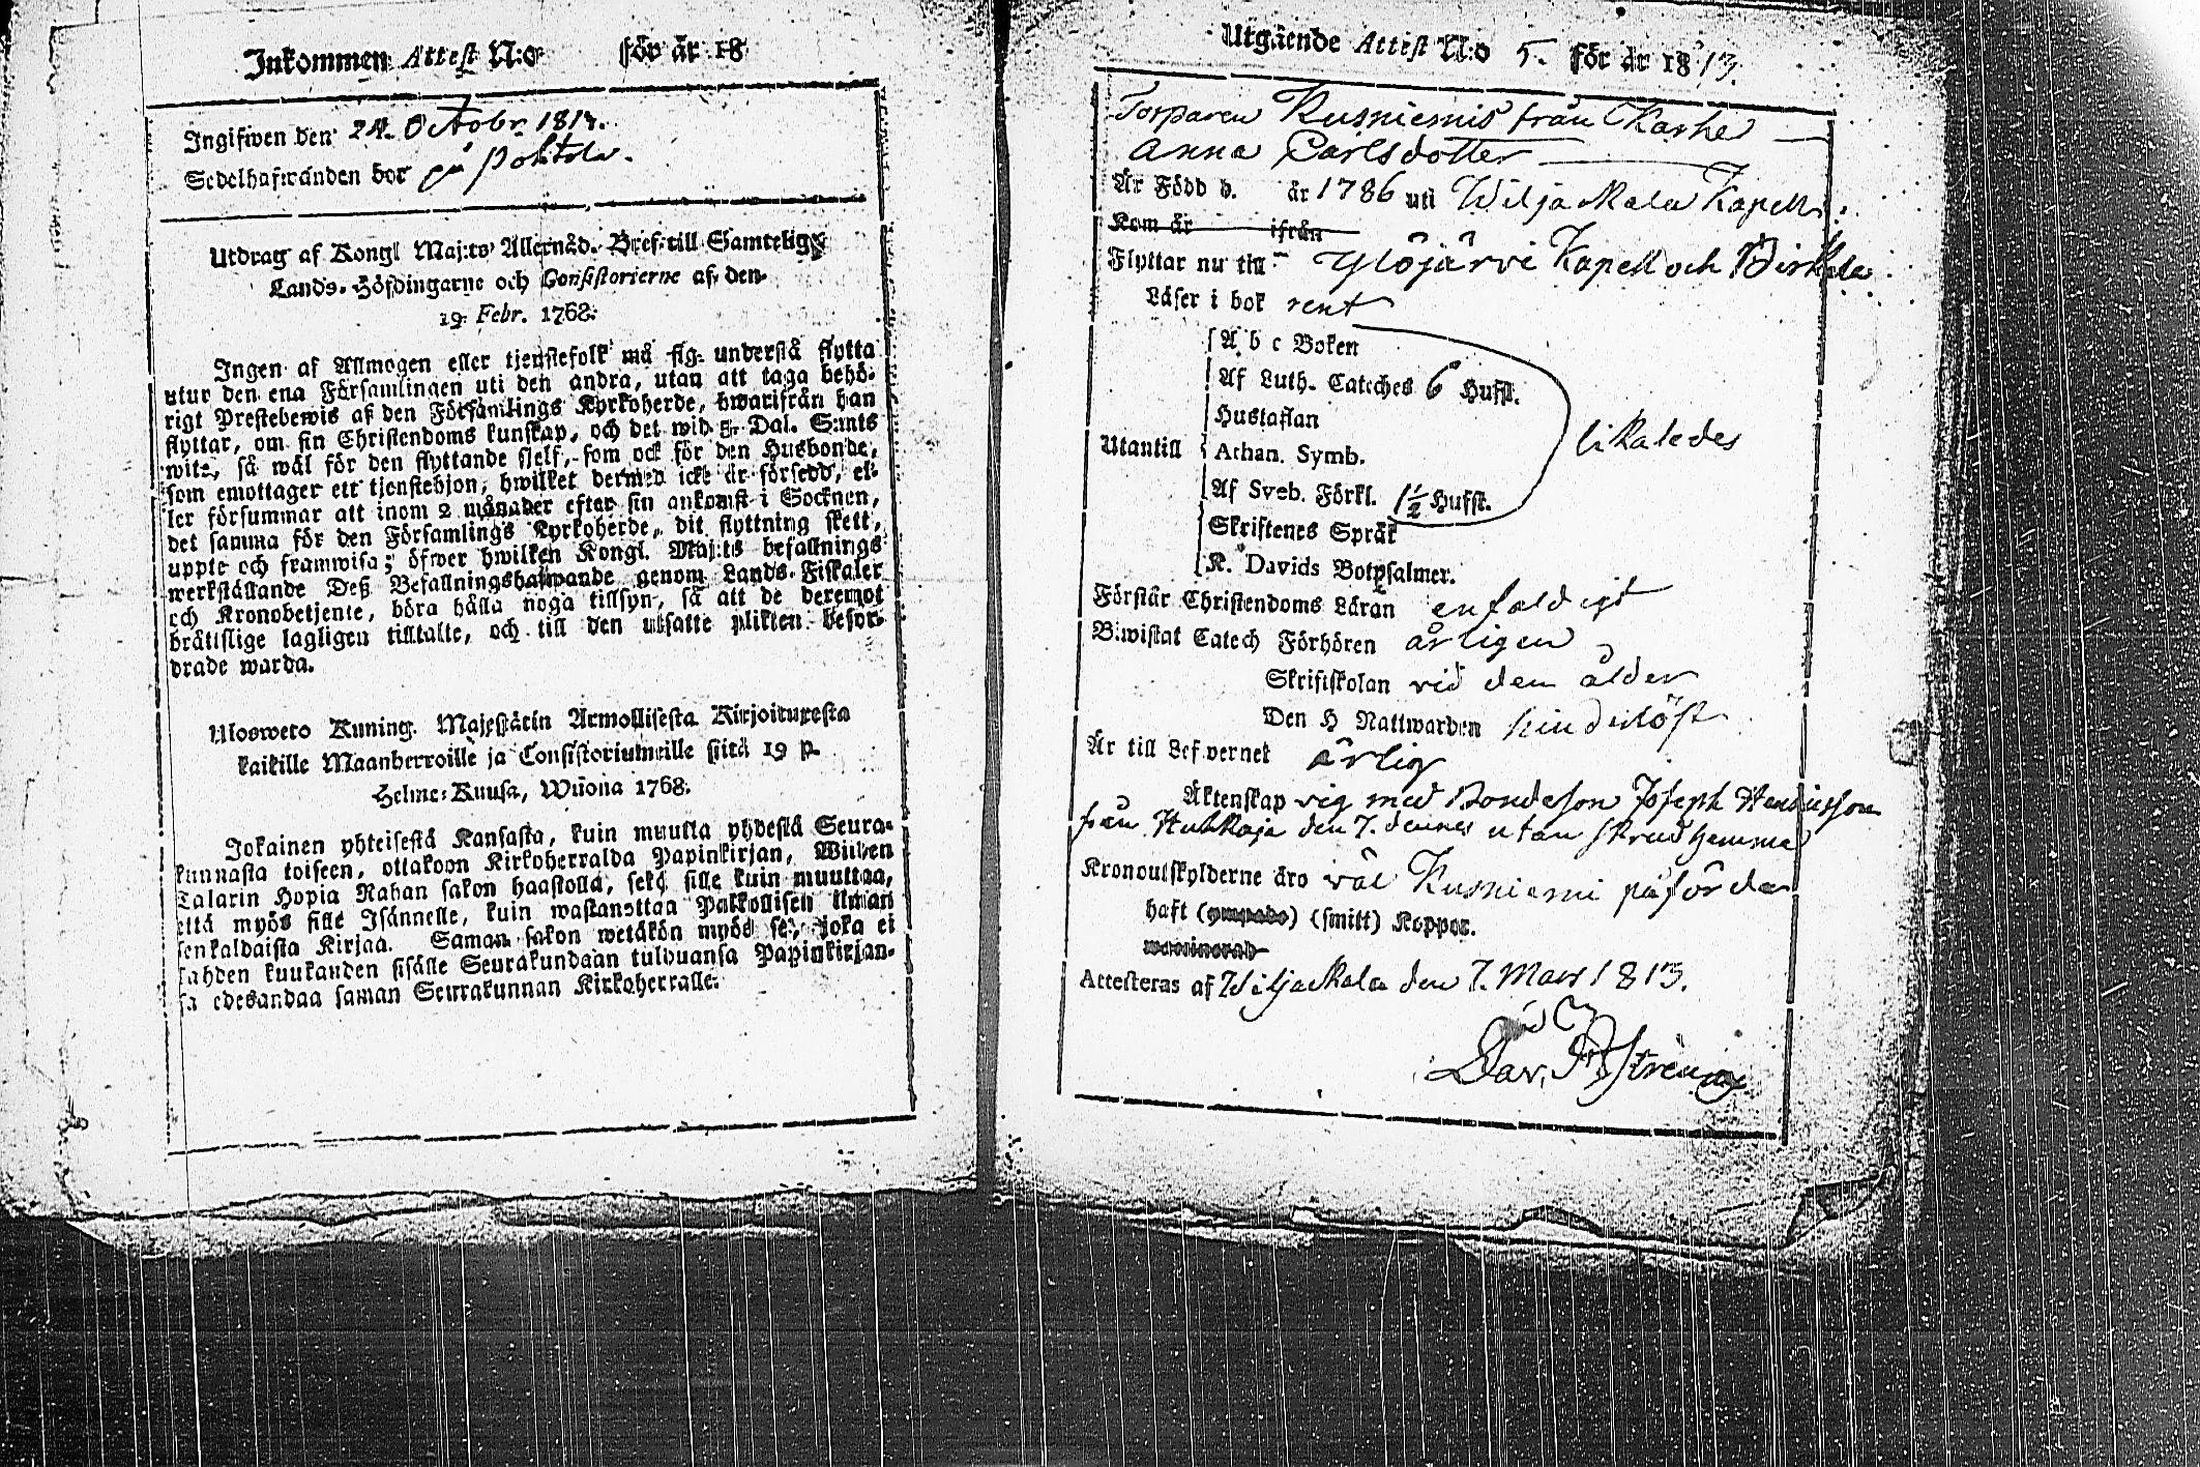 Inkommen Attest N:o för år 18
Ingifwen den 24. Octobr 1813.
Sedelhafwanden bor på Pohtola.
Utdrag af Kongl Maj:ts Allernåd. Bref till Samtelige
Lands-Höfdingarne och Consistorierne af den
19 Febr. 1768.
Ingen af Allmogen eller tjenstefolk må sig understå flytta
utur den ena Församlingen uti den andra, utan att taga behö-
rigt Prestebewis af den Församlings Kyrkoherde, hwarifrån han
flyttar, om sin Christendoms kunskap, och det wid Dal. S:mts
wite, så wäl för den flyttande sjelf, som ock för den Husbonde,
som emottager ett tjenstehjon, hwilket dermed icke är försedd, el-
ler försummar att inom 2 månader efter sin ankomst i Socknen,
det samma för den Församlings Kyrkoherde, dit flyttning skett,
uppte och framwisa; öfwer hwilken Kongl. Maj:ts befallnings
werkställande Deß Befallningshafwande genom Lands-Fiskaler
och Kronobetjente, böra hålla noga tillsyn, så att de deremot
brättslige lagligen tilltalte, och till den utsatte plikten befor-
drade warda.
Ulosweto Kuning. Majestätin Armollisesta Kirjoituxesta
kaikille Maanherroille ja Consistoriumeille siitä 19 p.
Helme-Kuusa, Wuona 1768.
Jokainen yhteisestä Kansasta, kuin muutta yhdestä Seura-
kunnasta toiseen, ottakoon Kirkoherralda Papinkirjan, Wiiden
Talarin Hopia Rahan sakon haastolla, sekä sille kuin muuttaa,
että myös sille Isännelle, kuin wastanottaa Palkollisen ilman
senkaldaista Kirjaa. Saman sakon wetäkön myös se, joka ei
kahden kuukauden sisälle Seurakundaan tulduansa Papinkirjan-
sa edesandaa saman Seurakunnan Kirkoherralle.
Utgående Attest N:o 5. för år 1813.
Torparen Kusniemis från Karhe
Anna Carlsdotter
Är Född d. år 1786 uti Wiljackala Kapell.
Kom år ifrån
Flyttar nu till Ylöjärvi Kapell och Birkala
Läser i bok rent
A b c Boken
Af Luth. Cateches 6 Hufst.
Hustaflan
Utantill Athan. Symb. likaledes
Af Sveb. Förkl. 1 1/2 Hufst.
Skriftenes Språk
K. Davids Botpsalmer.
Förstår Christendoms Läran enfaldigt
Biwistat Catech Förhören årligen
Skriftskolan vid den ålder
Den H Nattwarden hinderlöst
Är till Lefvernet ärlig
Äktenskap vig med Bondeson Joseph Henricsson
från den 7. dennes utan
Kronoutskylderne äro väl Kusniemi påförda
haft (ympade) (smitt) Koppor.
waccinerad
Attesteras af Wiljackala den 7. Mars 1813.
Dav.